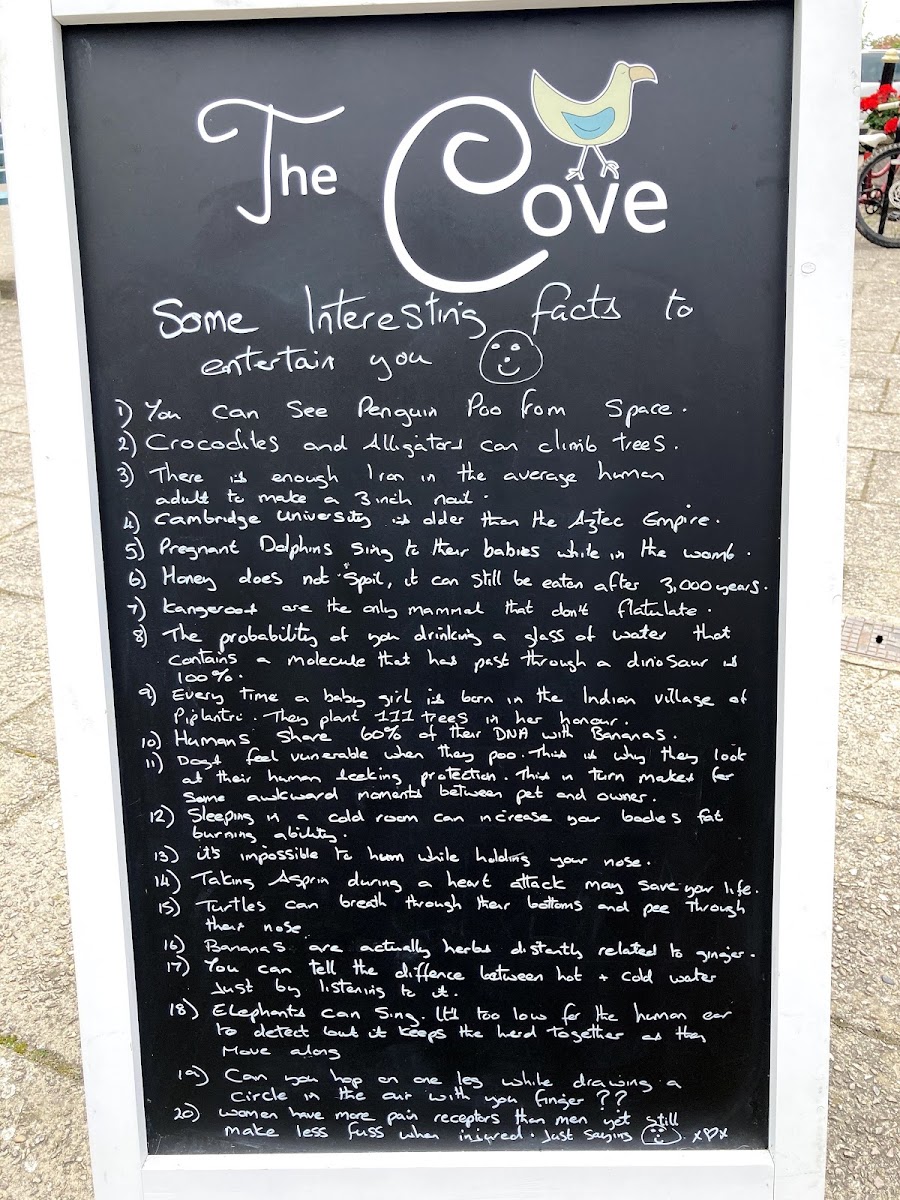 The Cove
Some Interesting facts to
entertain you
1) You can See Penguin Poo from Space.
2) Crocodiles and Alligators can climb trees.
3) There is enough Iron in the average human
adult to make a 3 inch nail.
4) Cambridge University is older than the Aztec Empire.
5) Pregnant Dolphins Sing to their babies while in the womb.
6) Honey does not Spoil, it can still be eaten after 3,000 years.
7) Kangeroos are the only mammal that don't flatulate.
8) The probability of you drinking a glass of water that
contains a molecule that has past through a dinosaur is
100%.
9) Every time a baby girl is born in the Indian village of
Piplantri. They plant 111 trees in her honour.
10) Humans Share 60% of their DNA with Bananas.
11) Dogs feel vunerable when they poo. This is why they look
at their human seeking protection. This in turn makes for
some awkward moments between pet and owner.
12) Sleeping in a cold room can increase your bodies fat
burning ability.
13) it's impossible to hum while holding your nose.
14) Taking Asprin during a heart attack may save your life.
15) Turtles can breath through their bottoms and pee through
their nose
16) Bananas are actually herbs distantly related to ginger.
17) You can tell the diffence between hot + cold water
Just by listening to it.
18) Elephants can Sing. It's too low for the human ear
to detect but it keeps the herd together as they
Move along
19) Can you hop on one leg while drawing a
circle in the air with you finger ??
20) women have more pain receptors than men yet still
make less fuss when injured. Just saying x♡x